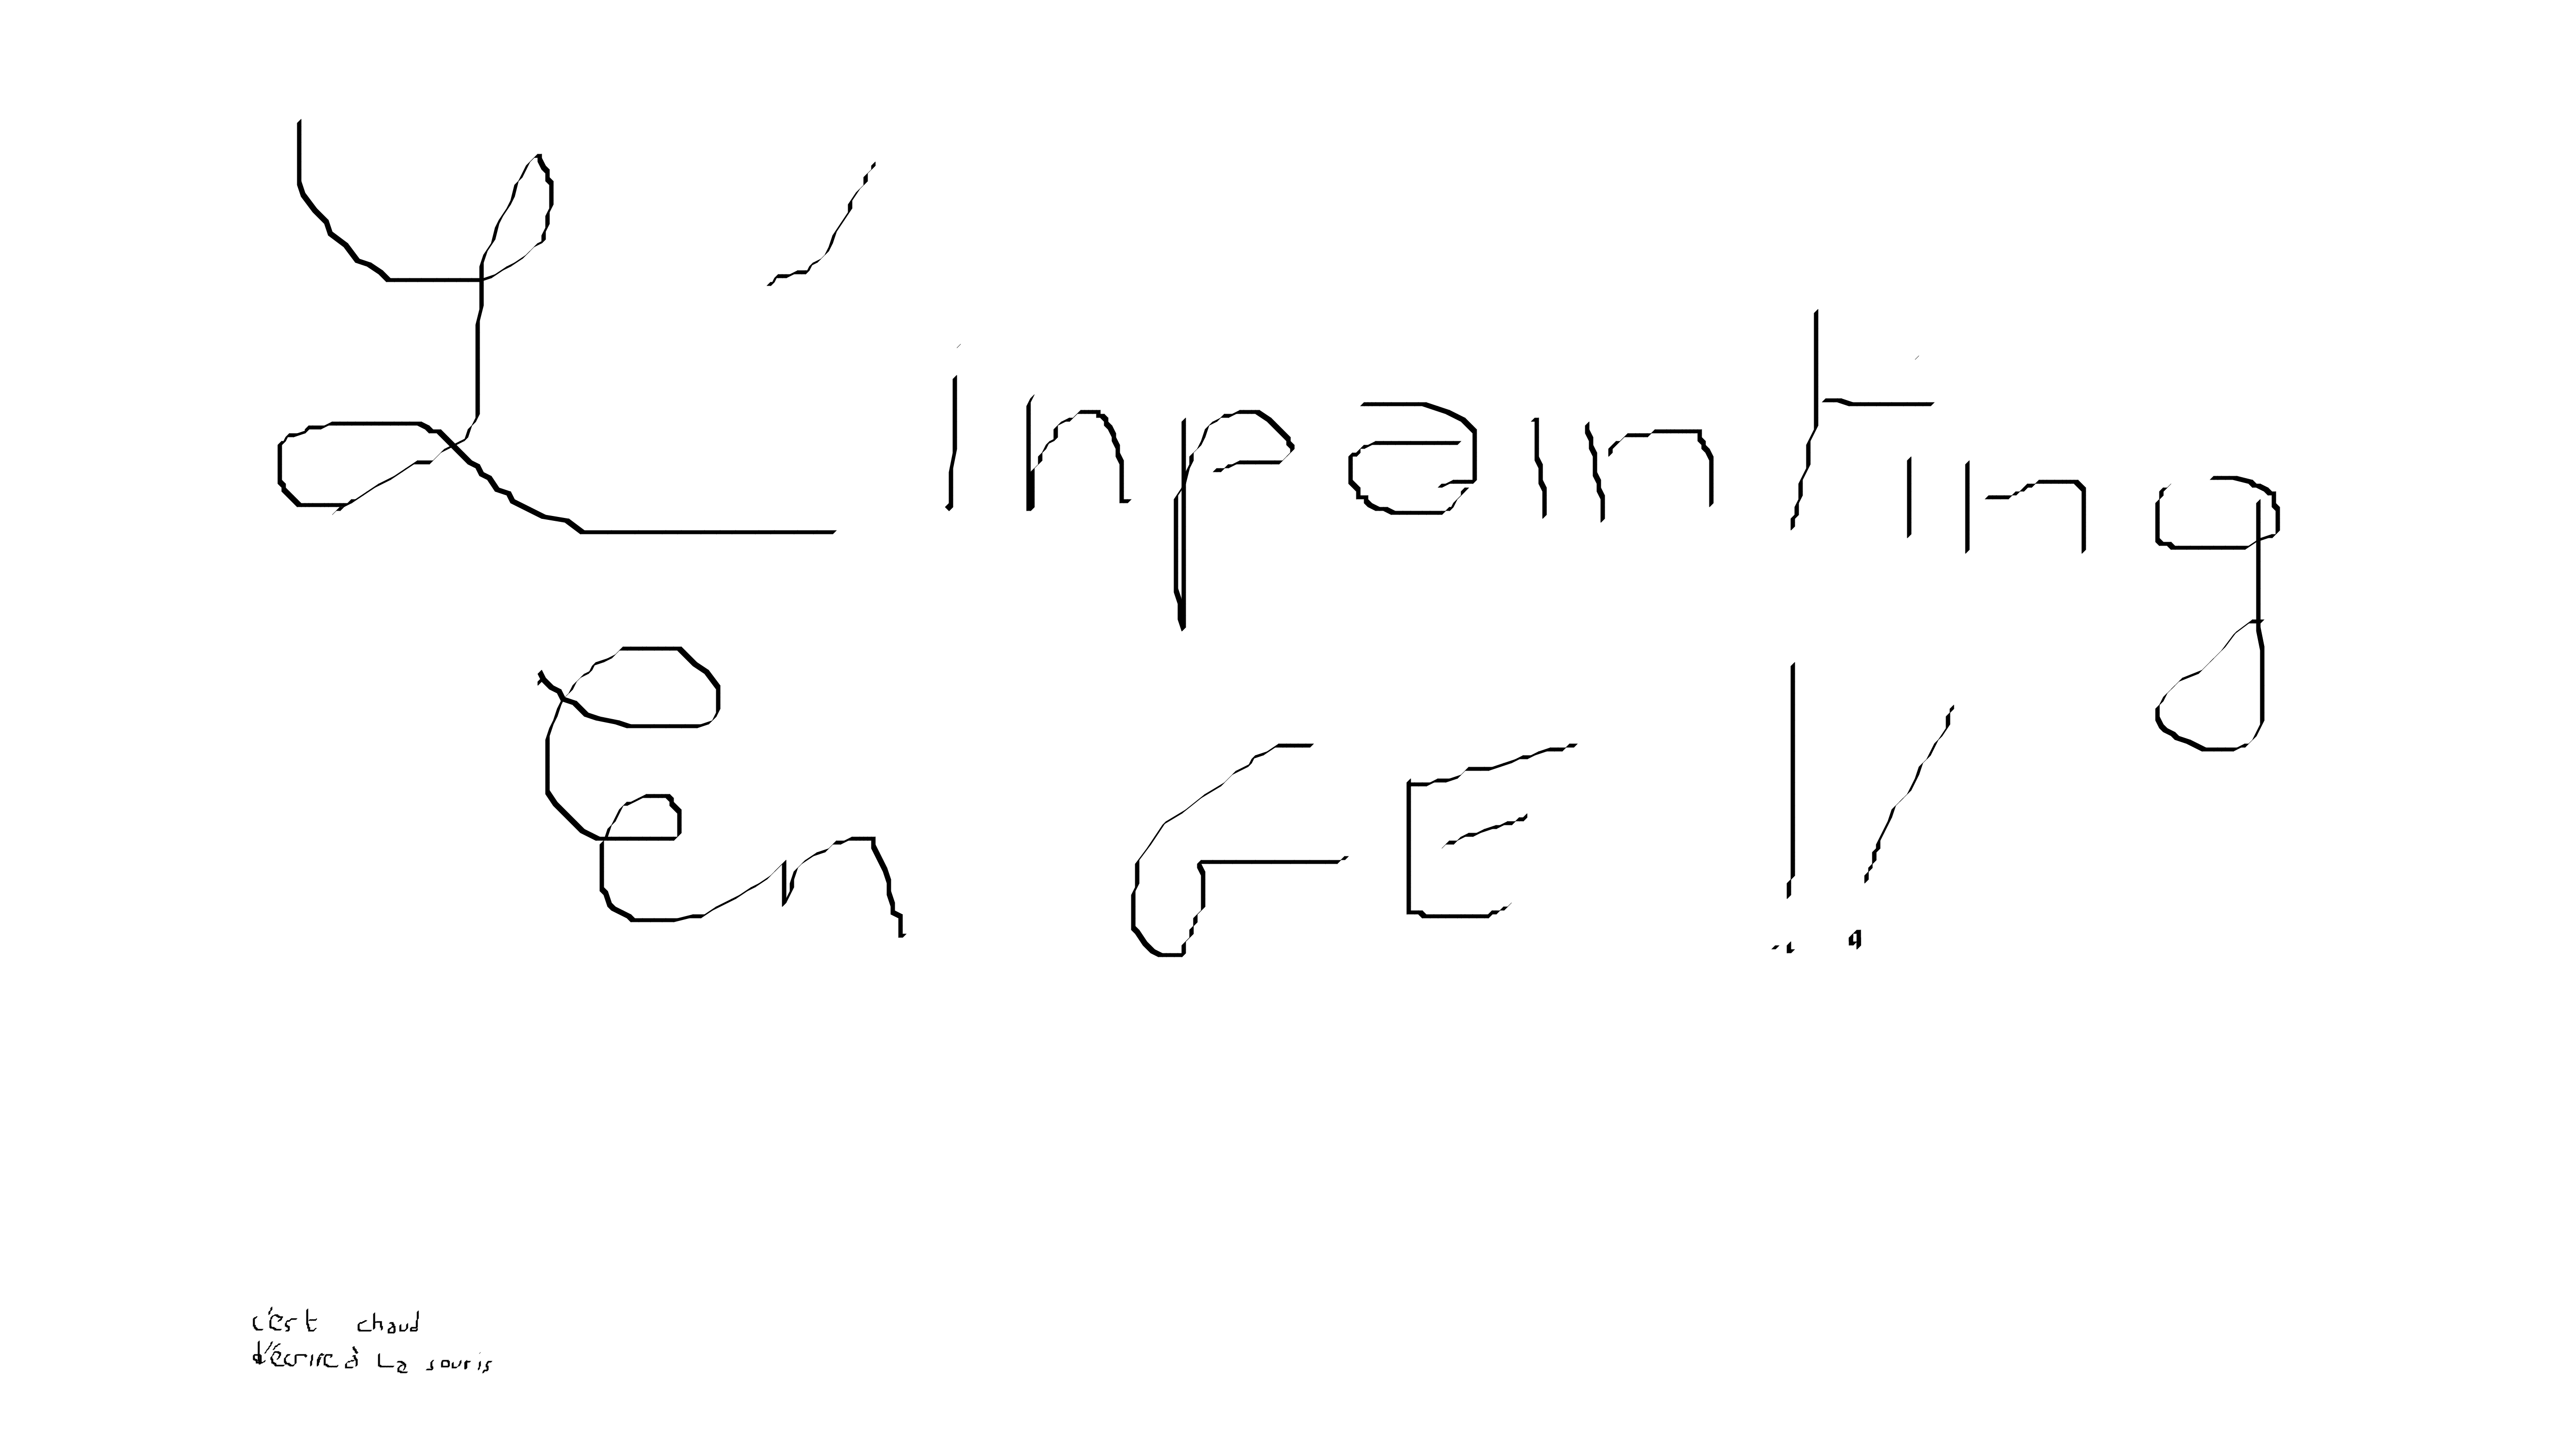 L'inpainting
en GE !!
c'est chaud
d'écrire à la souris